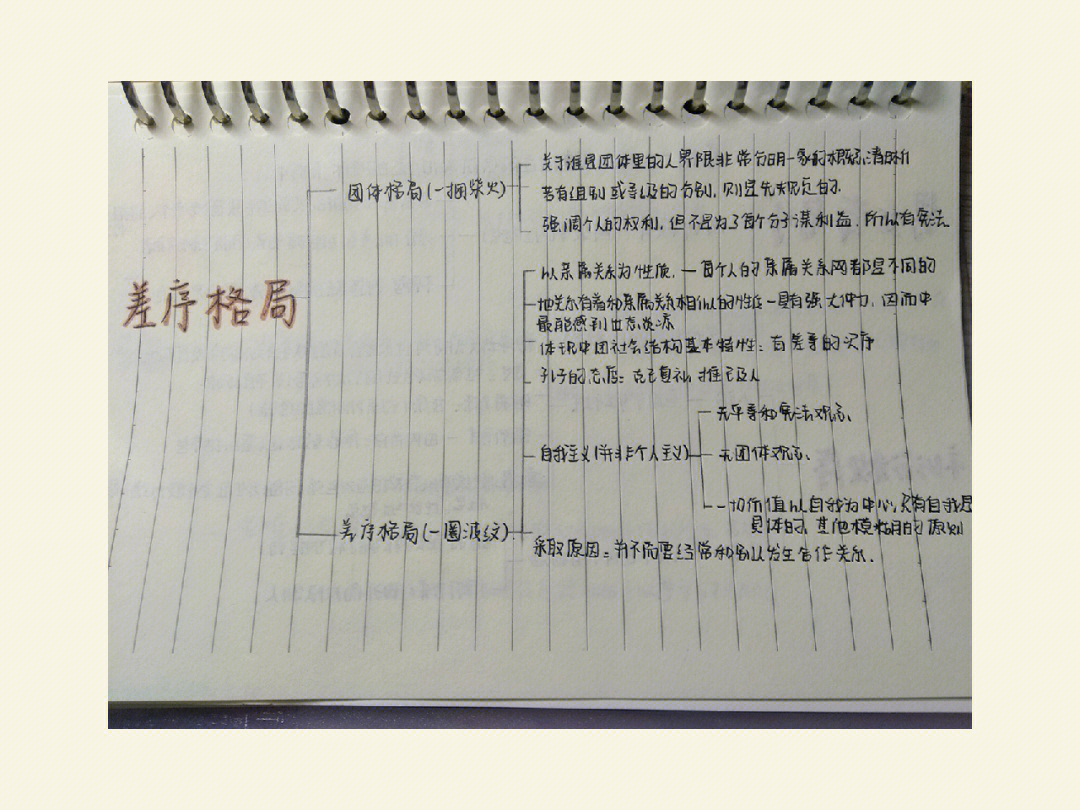 差序格局
团体格局(一捆柴火)
关于谁是团体里的人界限非常分明一家的概念清晰
若有组别或等级的分别,则是先规定的.
强调个人的权利,但不是为了每个分子谋利益,所以有宪法.
以亲属关系为性质,一每个人的亲属关系网都是不同的
地关系有着和亲属关系相似的性质一具有强大伸力,因而中
最能感到世态炎凉
体现中国社会结构基本特性:有差等的次序
孔子的态度:克己复礼,推己及人
自我主义(并非个人主义)
无平等和宪法观念.
无团体观念、
一切价值以自我为中心,只有自我是
具体的,其他模糊的原则
差序格局(一圈波纹)
采取原因:并不需要经常和别人发生合作关系.